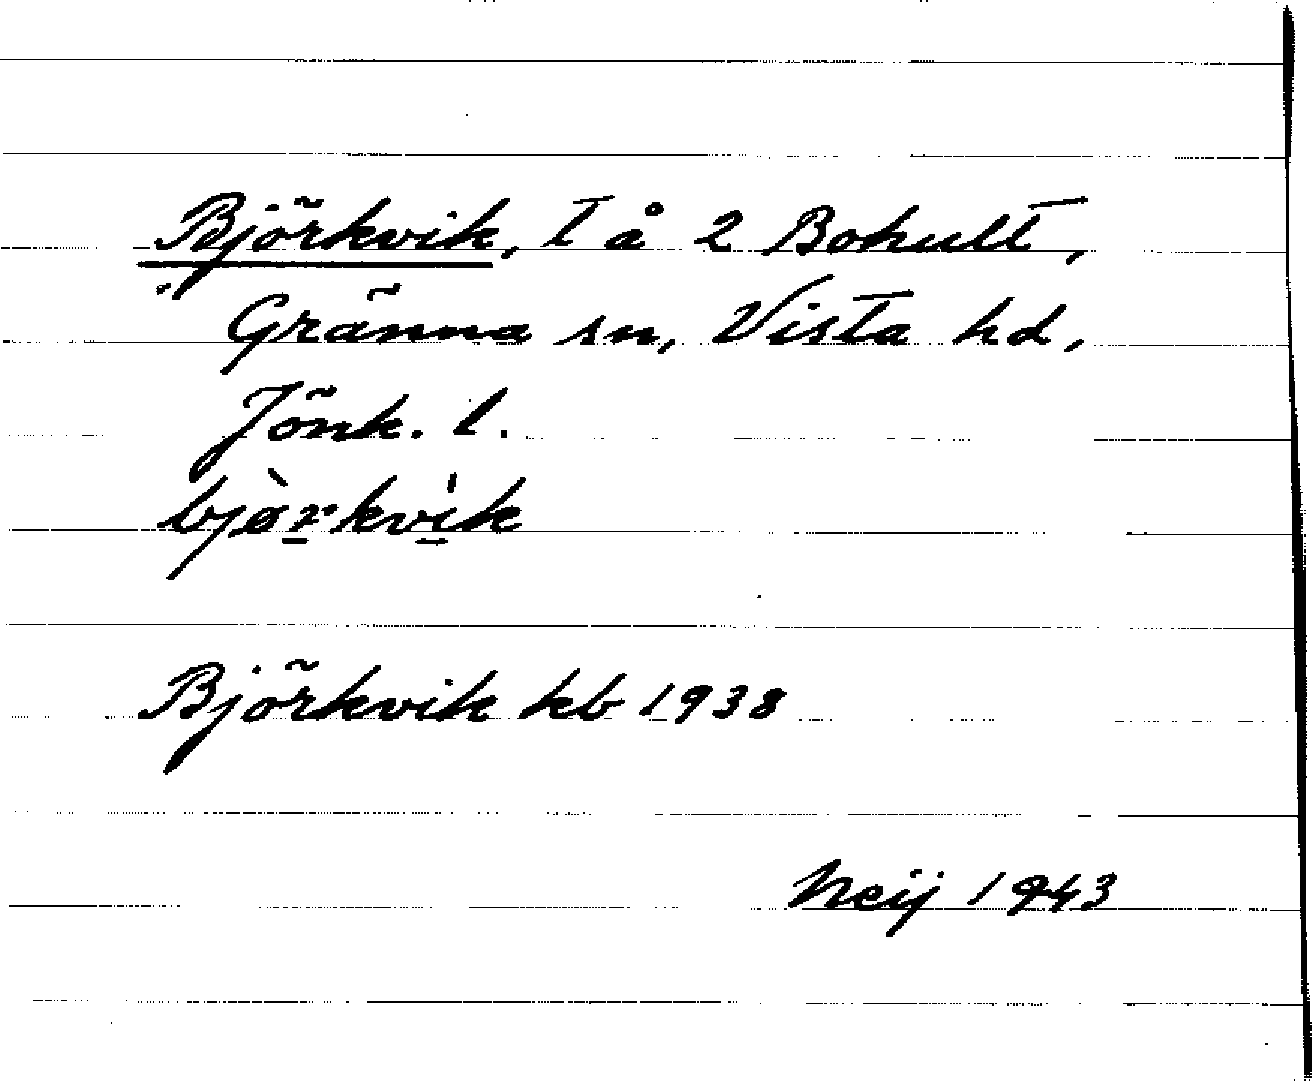 Björkvik, t å 2 Bohult,
Gränna sn, Vista hd,
Jönk. l.
bjørkvik
Björkvik kb 1938
Neij 1943